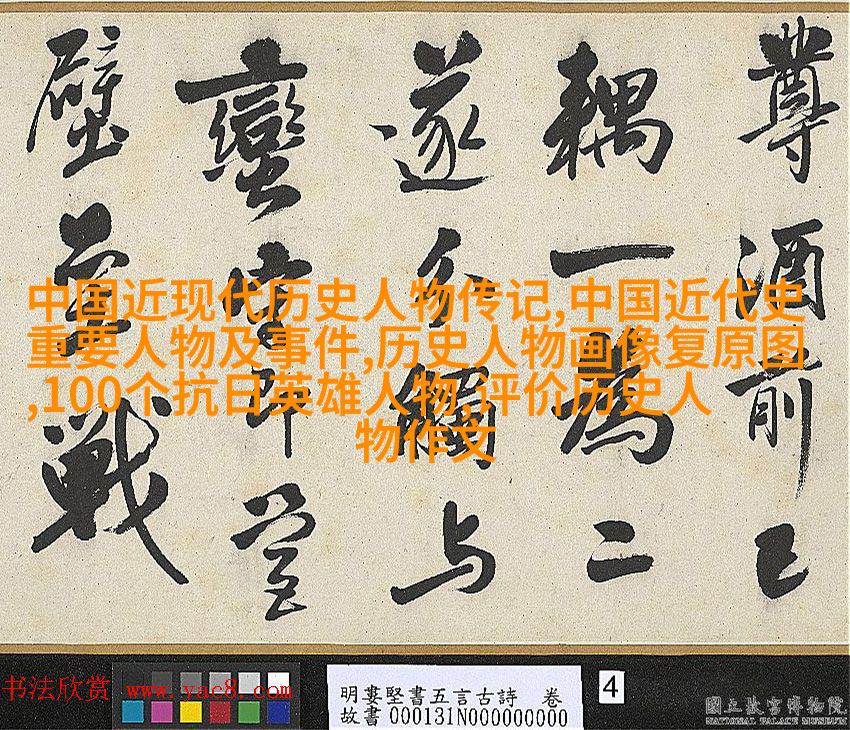 尊酒前已
耦一為二
遂分觸与
蠻
壁戰
中国近现代历史人物传记,中国近代史
重要人物及事件,历史人物画像复原图
,100个抗日英雄人物,评价历史人
物作文
书法欣赏 www.yac8.com
明婁堅書五言古詩 卷
故書000131N000000000
4
國立故宮博物院
NATIONAL PALACE MUSEUM